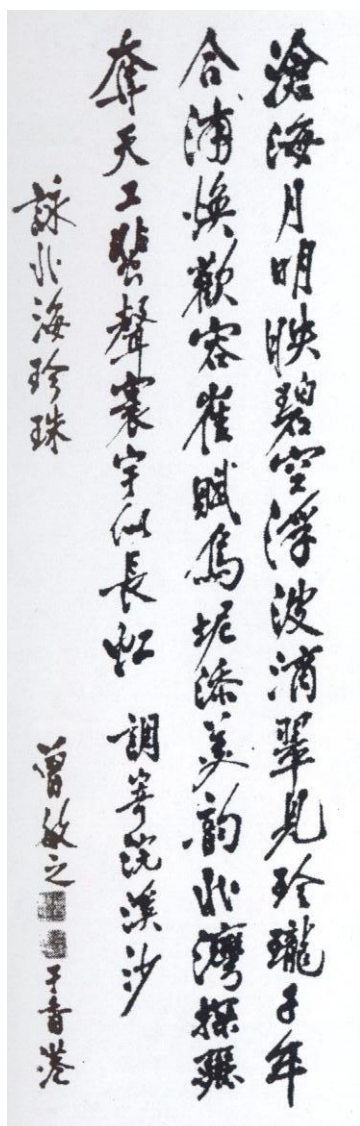 滄海月明映碧空浮波滴翠見玲瓏千年
合浦煥歡容崔賦烏坭添美韵北灣探驪
奪天工蜚聲寰宇似長虹 調寄浣溪沙
詠北海珍珠 曾敏之 于香港